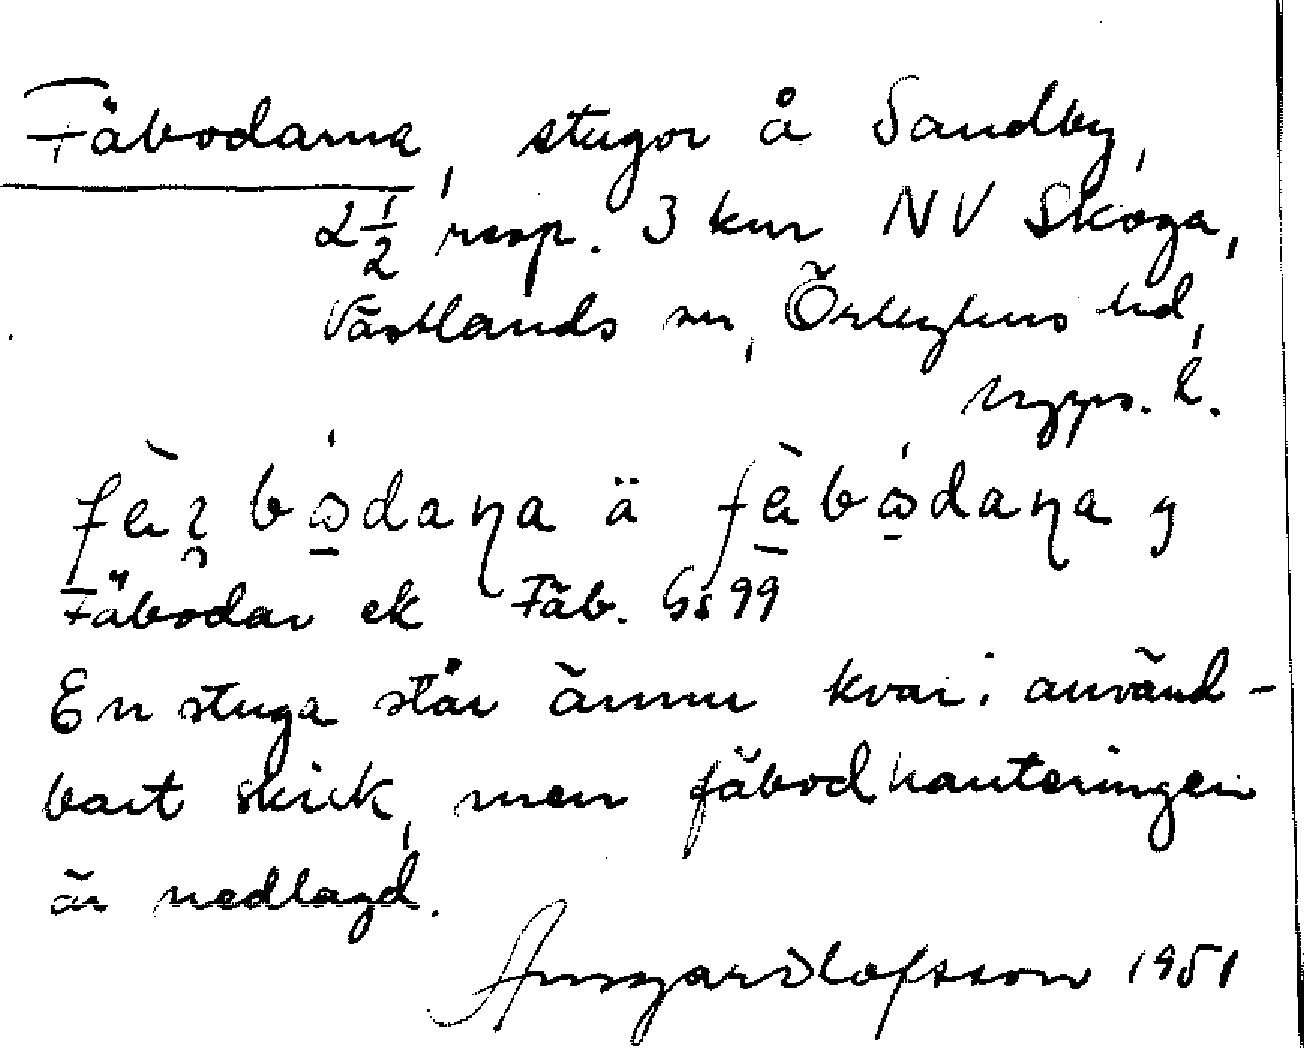 Fäbodarna, stugor å Sandby,
2 1/2 resp. 3 km NV Skoga,
Västlands sn, Örbyhus hd,
Upps. l.
ä
Fäbodar ek Fäb. Gs 99
En stuga står ännu kvar i använd-
bart skick, men fäbodhanteringen
är nedlagd.
Ansgar Olofsson 1951